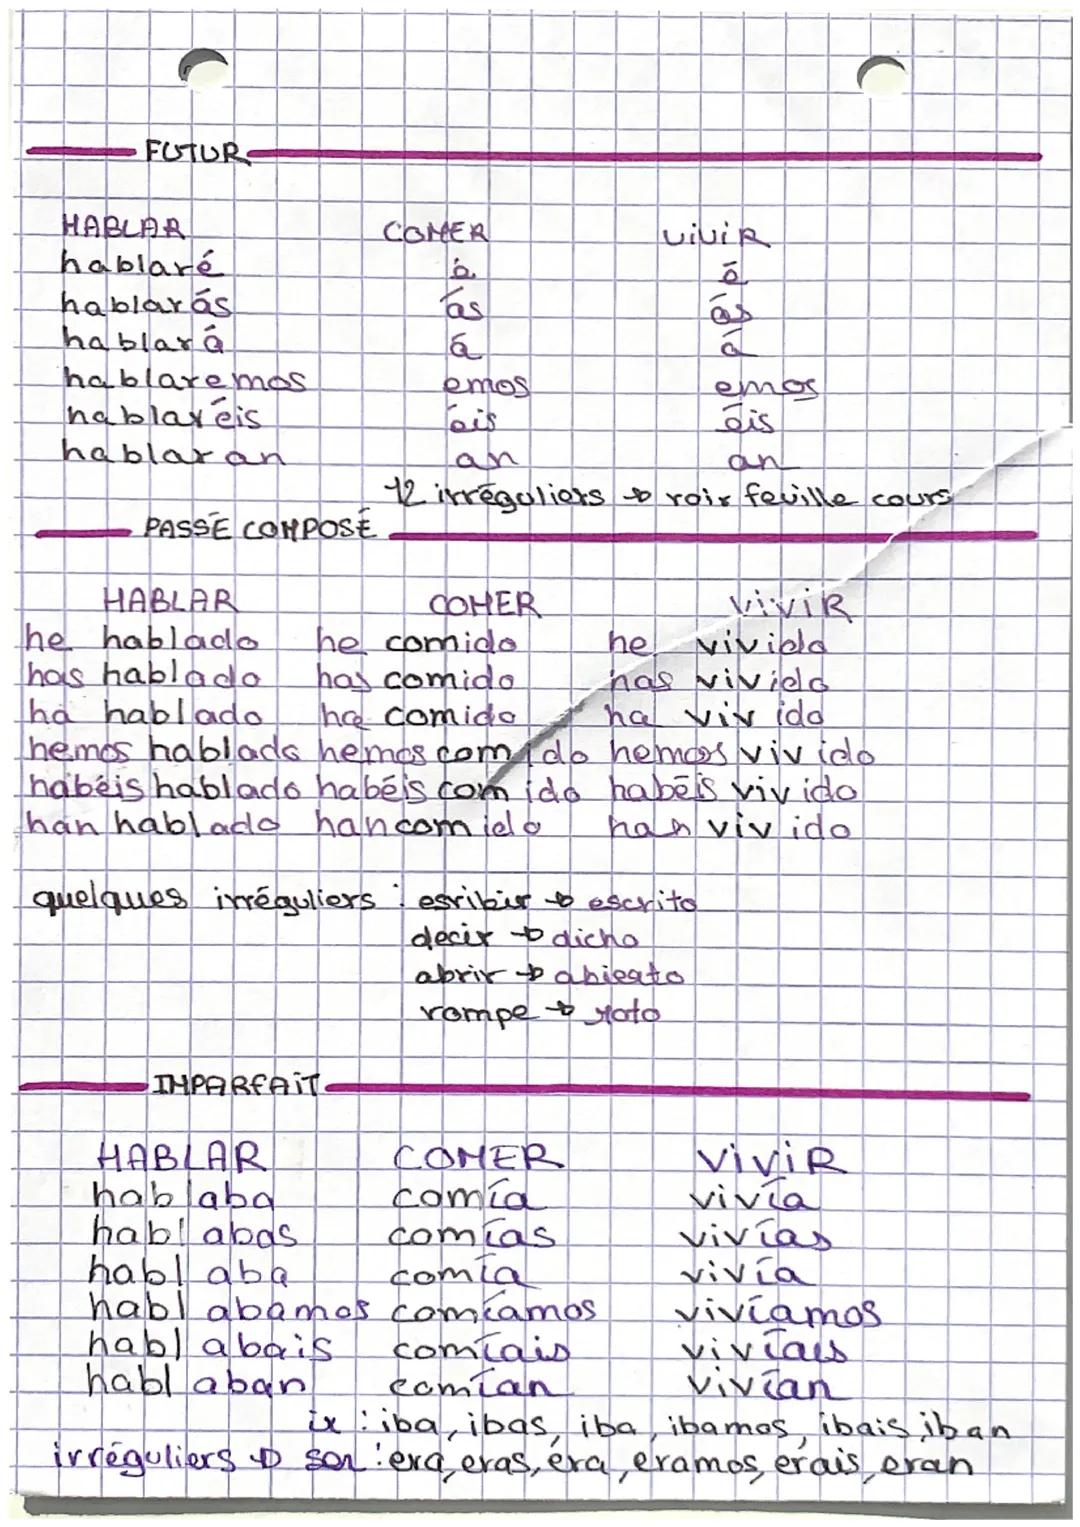 FUTUR
HABLAR COMER ViViR
hablaré é é
hablarás ás ás
hablará á á
hablaremos emos emos
hablaréis éis éis
hablaran an an
12 irréguliers → voir feuille cours
PASSÉ COMPOSÉ
HABLAR COMER ViViR
he hablado he comido he vivido
has hablado has comido has vivido
ha hablado ha comido ha vivido
hemos hablado hemos comido hemos vivido
habéis hablado habéis comido habéis vivido
han hablado han comido han vivido
quelques irréguliers : esribir → escrito
decir → dicho
abrir → abierto
rompe → roto
IMPARFAiT
HABLAR COMER ViViR
hablaba comía vivía
hablabas comías vivías
hablaba comía vivía
hablabamos comíamos vivíamos
hablabais comíais vivíais
hablaban comían vivían
ir : iba, ibas, iba, ibamos, ibais, iban
irréguliers → ser : era, eras, era, eramos, erais, eran